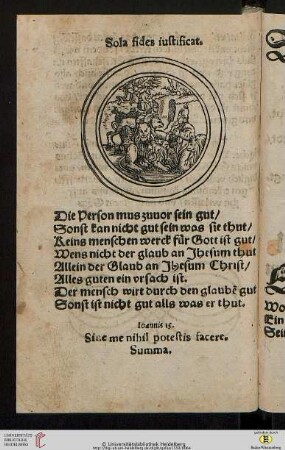 Sola fides iustificat.
Die Person mus zuuor sein gut/
Sonst kan nicht gut sein was sie thut/
Keins menschen werck für Gott ist gut/
Wens nicht der glaub an Jhesum thut
Allein der Glaub an Jhesum Christ/
Alles guten ein vrsach ist.
Der mensch wirt durch den glaubē gut
Sonst ist nicht gut alls was er thut.
Ioannis 15.
Sine me nihil potestis facere.
Summa.
Wo
Ein
Sei
UNIVERSITÄTS-
BIBLIOTHEK
HEIDELBERG
© Universitätsbibliothek Heidelberg